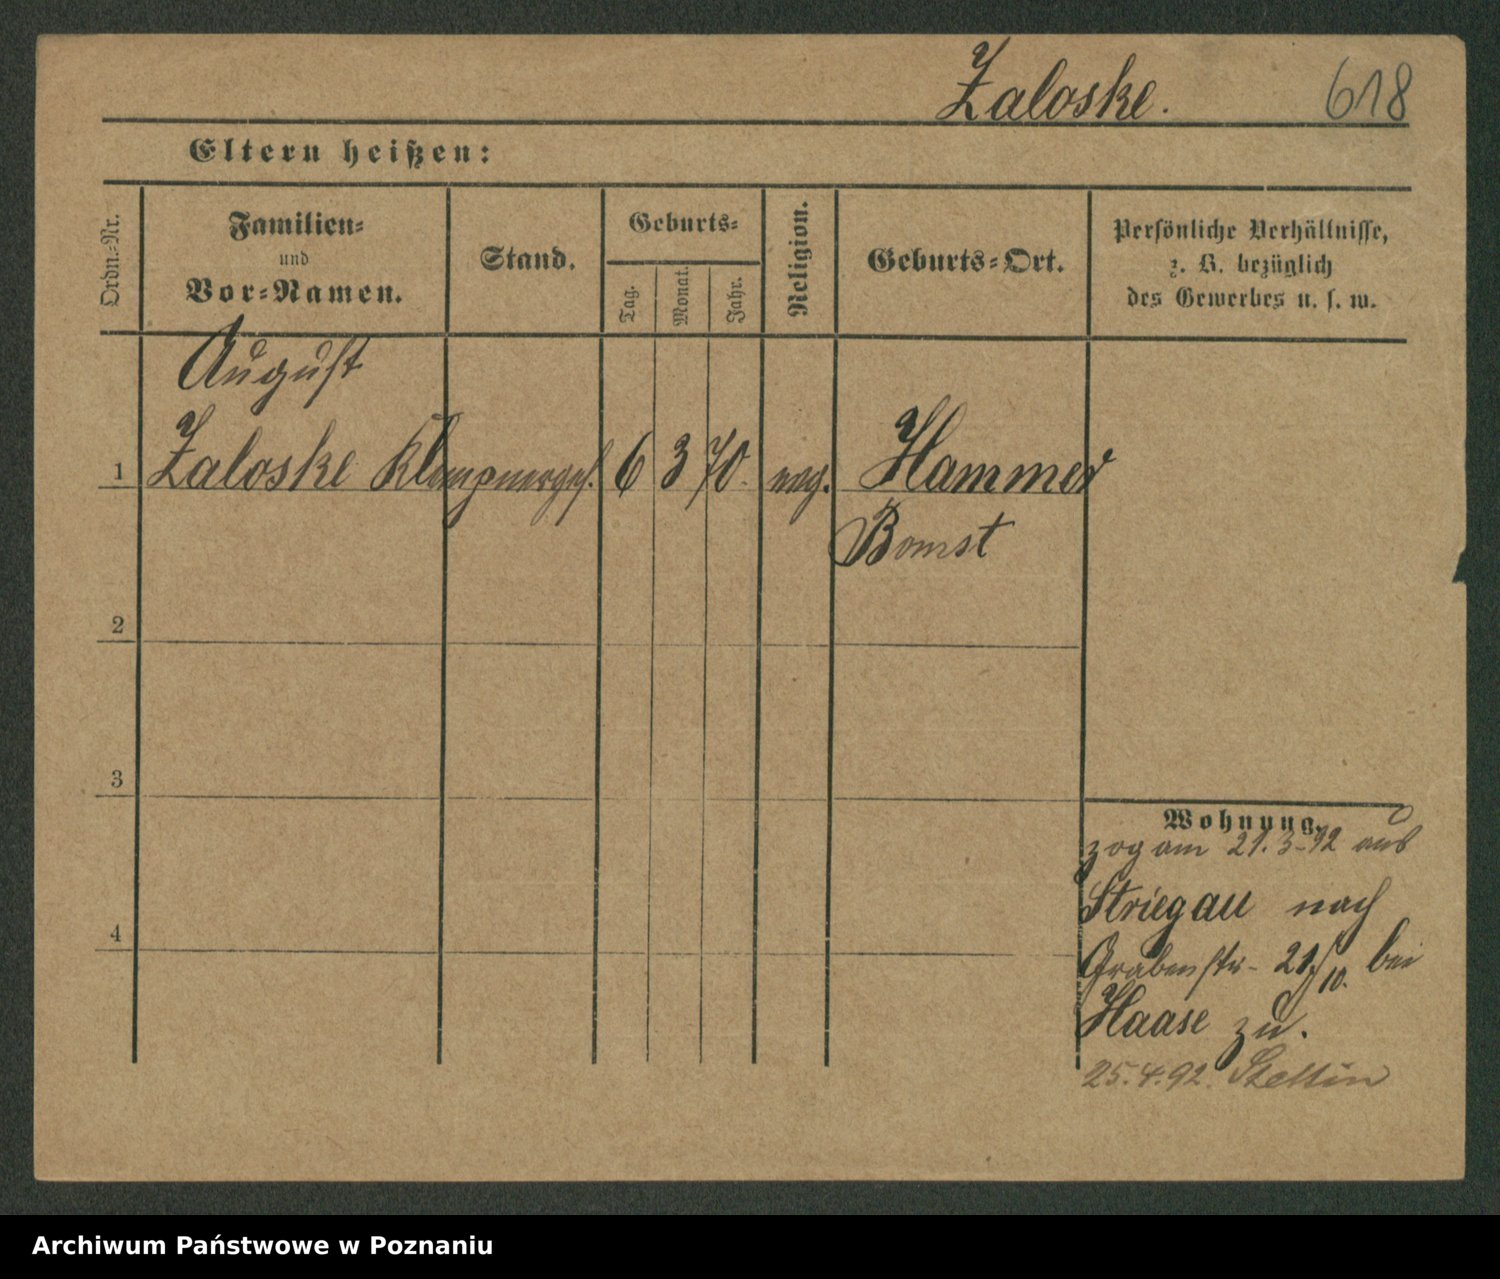 Zaloske. 618
Eltern heißen:
Ordn.-Nr.
Familien-
und
Vor-Namen.
Stand.
Geburts-
Tag.
Monat.
Jahr.
Religion.
Geburts-Ort.
Persönliche Verhältnisse,
z. B. bezüglich
des Gewerbes u. s. w.
August
1 Zaloske Klempnerges. 6 3 70. evg. Hammer
Bomst
2
3
4
Wohnung.
zog am 21.3-92 aus
Striegau nach
Grabenstr- 21/10. bei
Haase zu.
25.4.92. Stettin
Archiwum Państwowe w Poznaniu